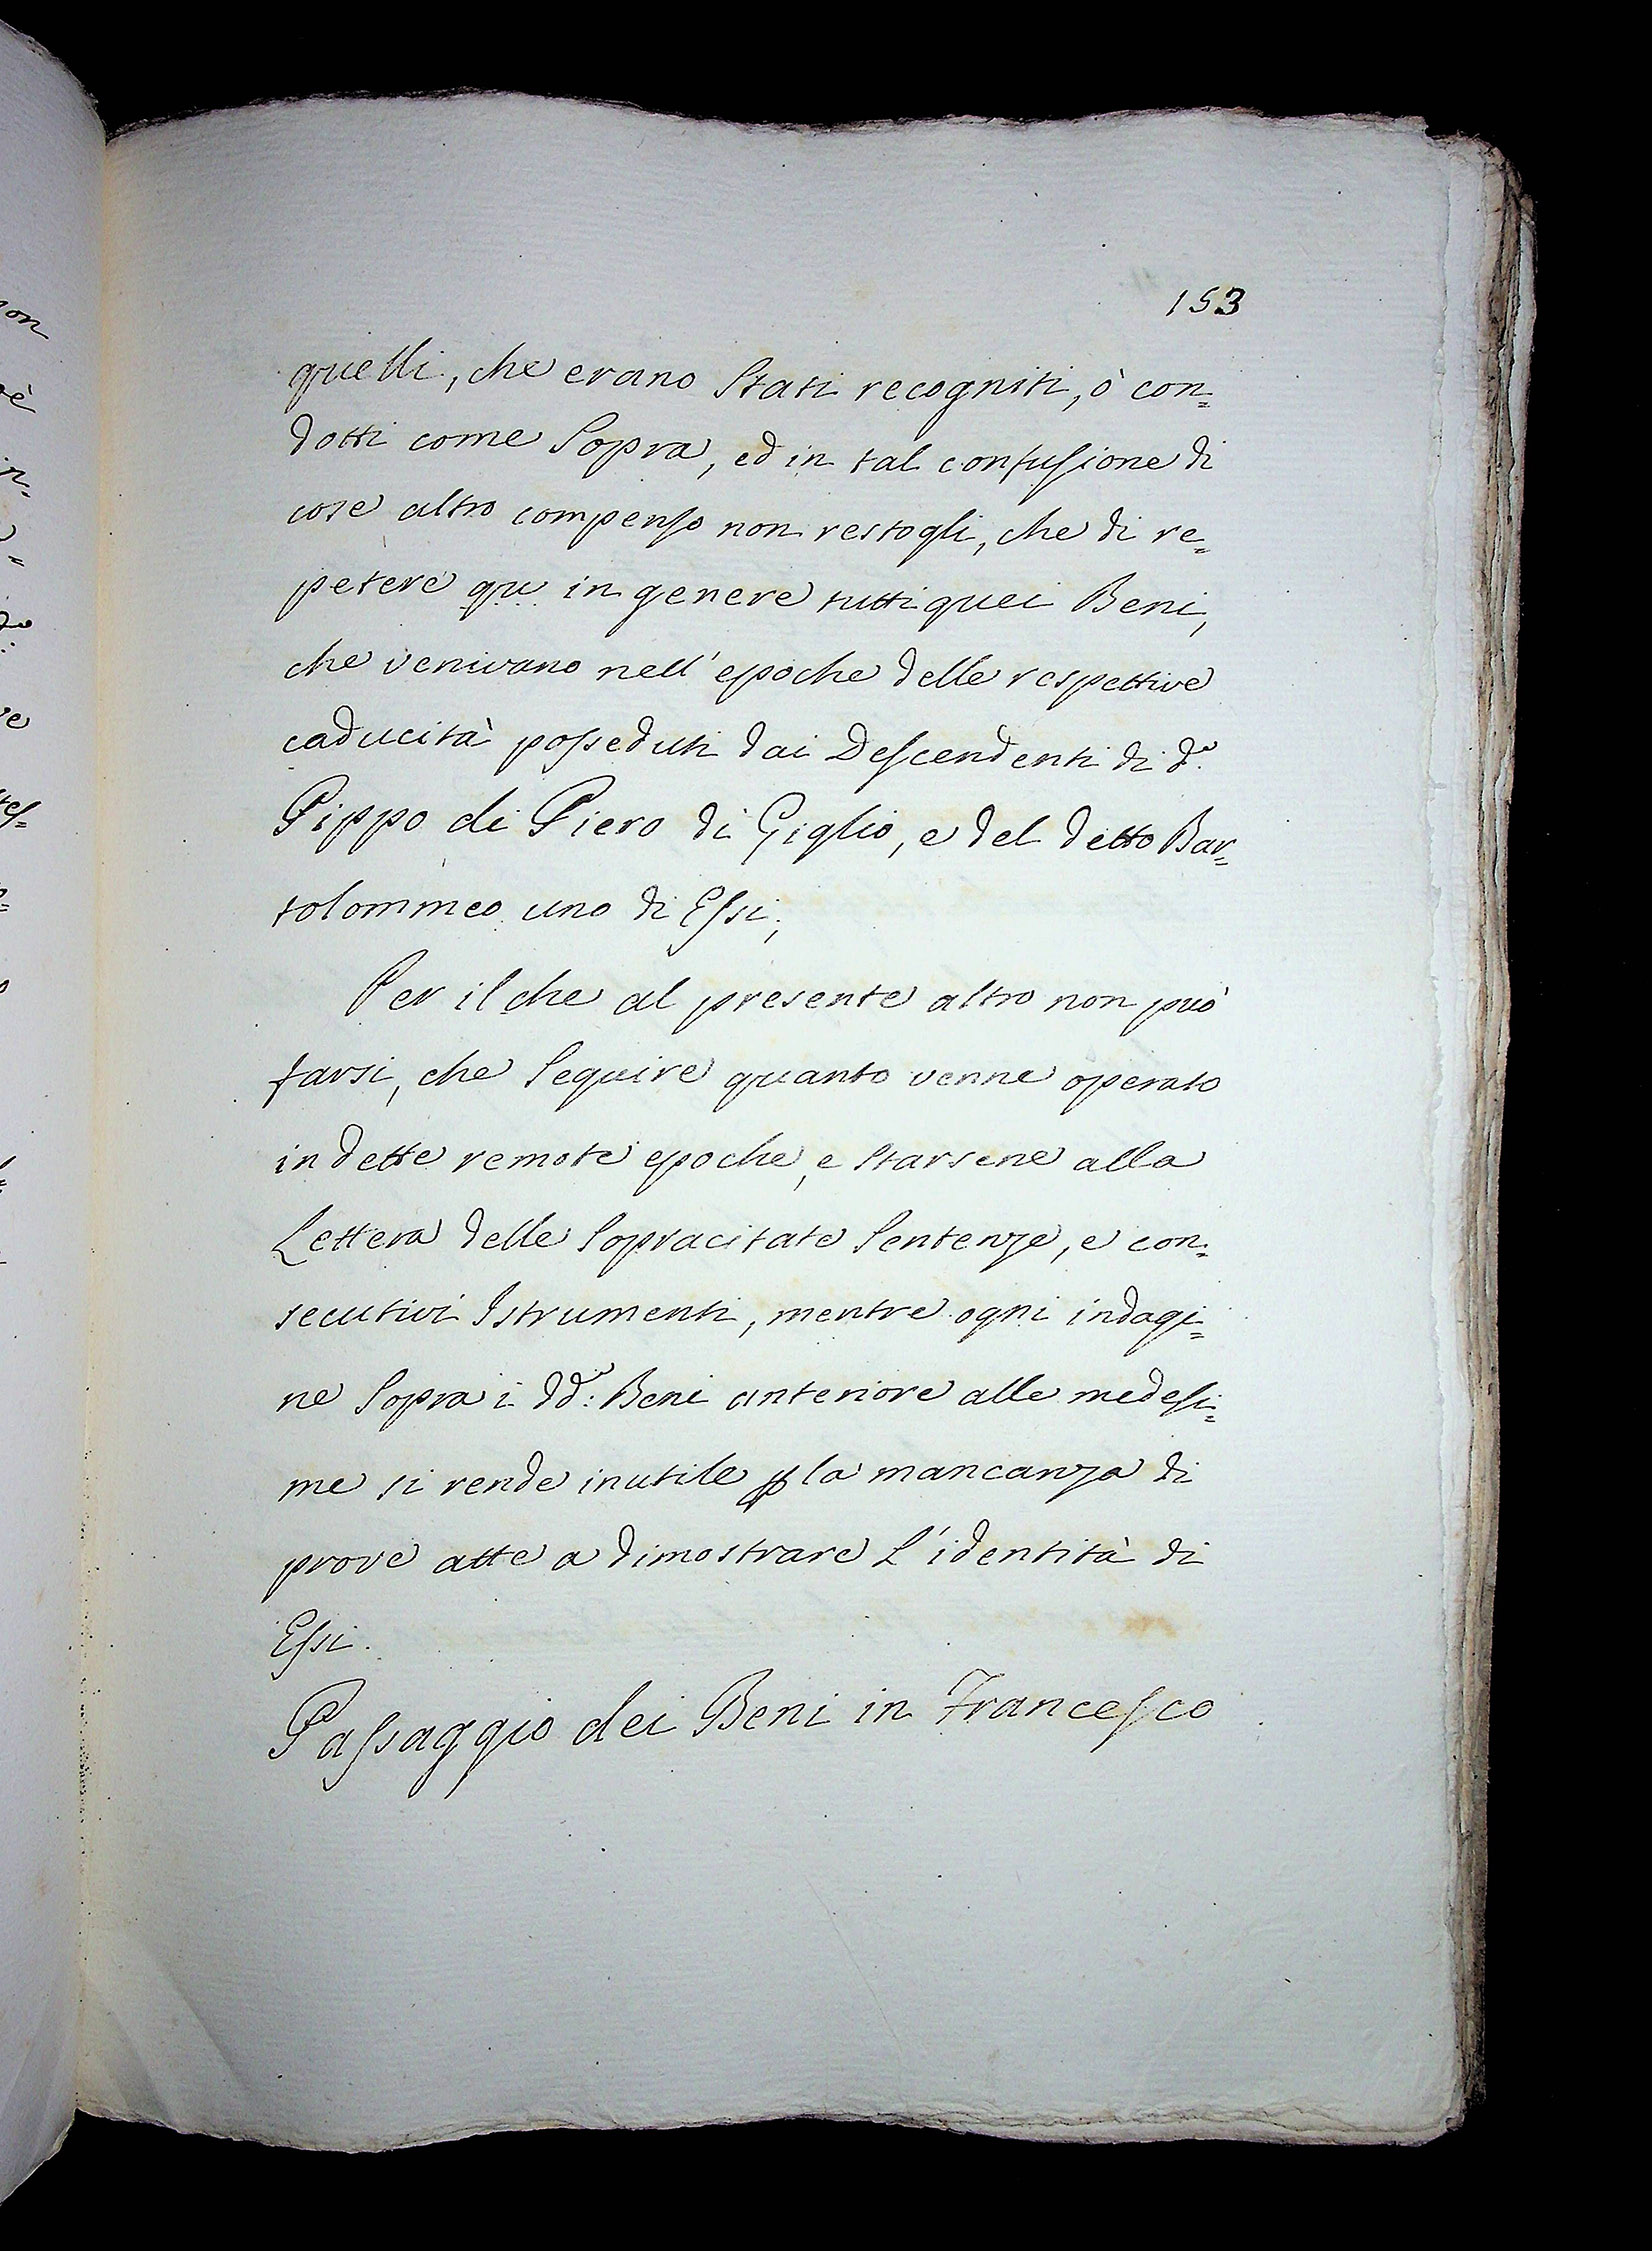 153
quelli, che erano Stati recogniti, ò con=
dotti come Sopra, ed in tal confusione di
cose altro compenso non restogli, che di re=
petere qu in genere tutti quei Beni,
che venivano nell'epoche delle respettive
caducità posseduti dai Descendenti di d.°
Pippo di Piero di Giglio, e del detto Bar=
tolommeo uno di Essi;
Per il che al presente altro non può
farsi, che Seguire quanto venne operato
in dette remote epoche, e Starsene alla
Lettera delle Sopracitate Sentenze, e con=
secutivi Istrumenti, mentre ogni indagi=
ne Sopra i dd.i Beni anteriore alle medesi=
me si rende inutile p la mancanza di
prove atte a dimostrare L'identità di
Essi.
Passaggio dei Beni in Francesco